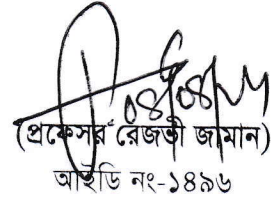 (প্রফেসর রেজভী জামান)
আইডি নং-১৪৯৬